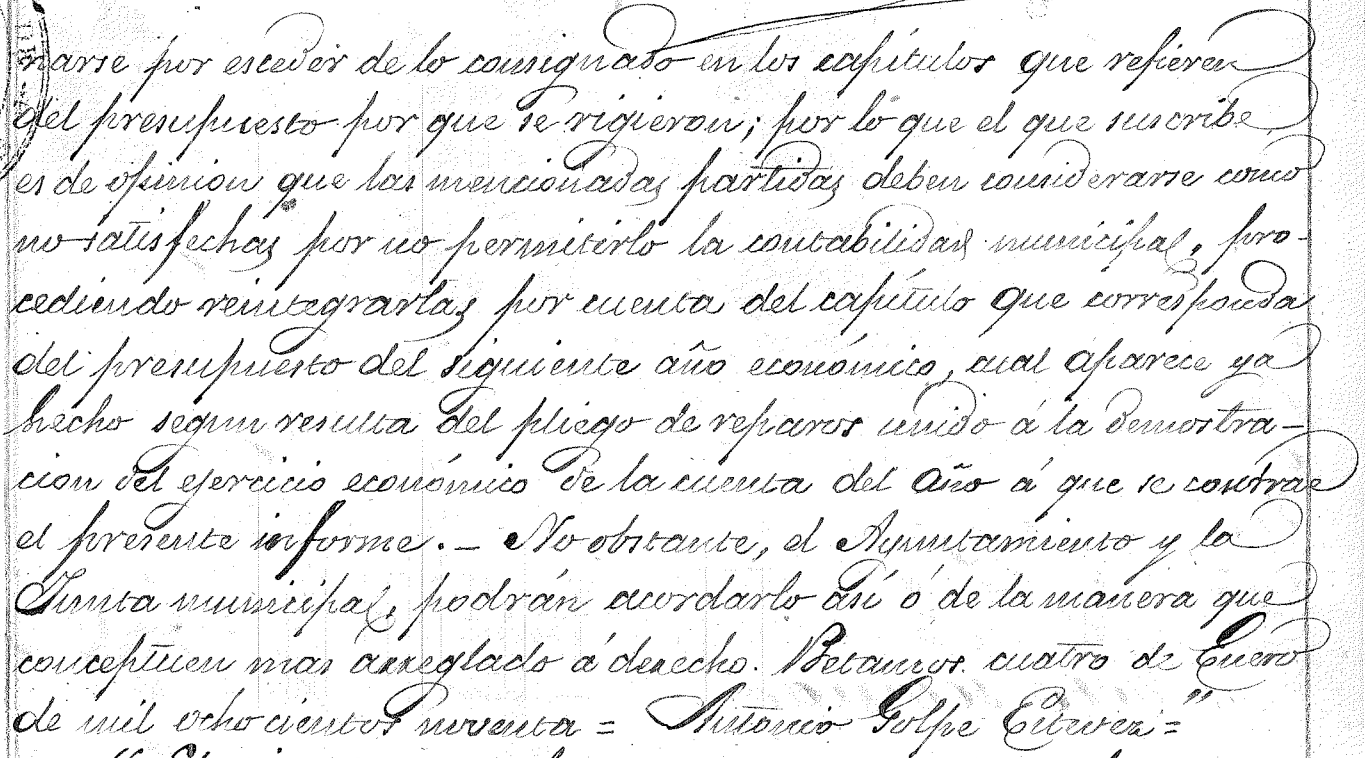 narse por esceder de lo consignado en los capítulos que refieren
del presupuesto por que se rigieron; por lo que el que suscribe
es de opinion que las mencionadas partidas deben considerarse como
no satisfechas por no permitirlo la contabilidad municipal, pro-
cediendo reintegrarlas por cuenta del capítulo que corresponda
del presupuesto del siguiente año económico, cual aparece ya
hecho segun resulta del pliego de reparos unido á la demostra-
cion del ejercicio económico de la cuenta del año á que se contrae
el presente informe. _ No obstante, el Ayuntamiento y la
Junta municipal, podrán acordarlo así ó de la manera que
conceptuen mas arreglado á derecho. Betanzos cuatro de Enero
de mil ochocientos noventa = Antonio Golpe Estevez ="